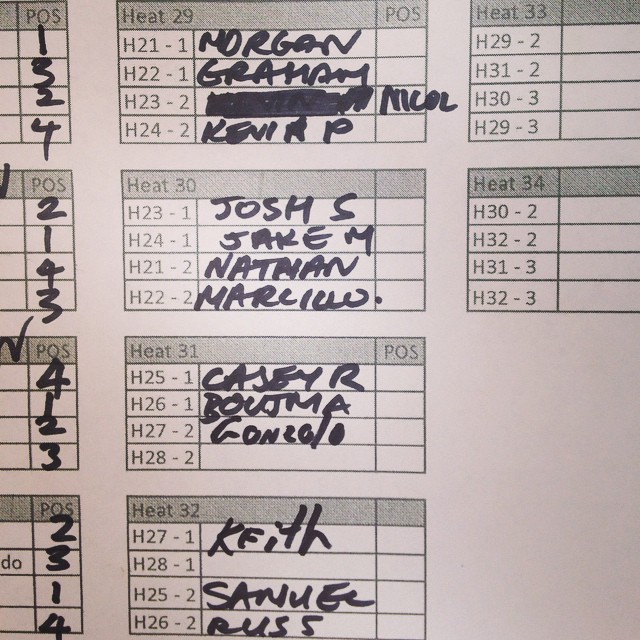 POS
1
3
2
4
POS
2
1
4
3
POS
4
1
2
3
POS
2
do 3
1
4
Heat 29 POS
H21 - 1 MORGAN
H22 - 1 GRAHAM
H23 - 2 NICOL
H24 - 2 KEVIN P
Heat 30
H23 - 1 JOSH S
H24 - 1 JAKE M
H21 - 2 NATHAN
H22 - 2 MARCILLO.
Heat 31 POS
H25 - 1 CASEY R
H26 - 1 BOUTMA
H27 - 2 GONZOLO
H28 - 2
Heat 32
H27 - 1 KEITH
H28 - 1
H25 - 2 SAMUEL
H26 - 2 RUSS
Heat 33
H29 - 2
H31 - 2
H30 - 3
H29 - 3
Heat 34
H30 - 2
H32 - 2
H31 - 3
H32 - 3